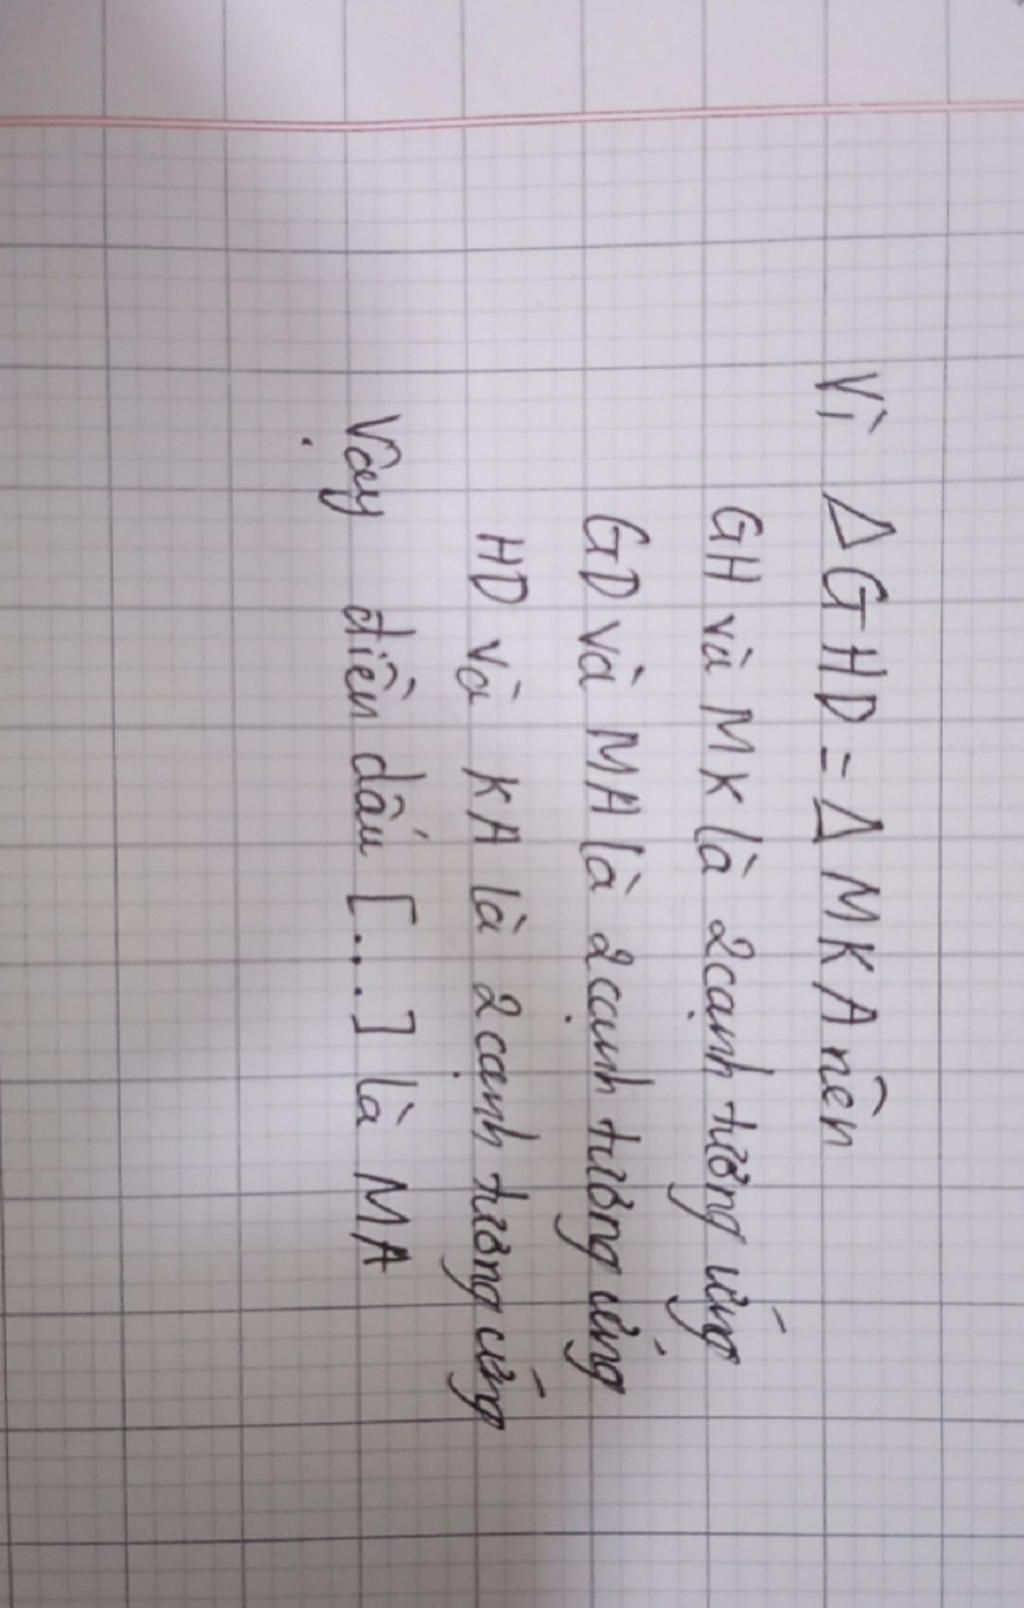 Vì Δ GHD = Δ MKA nên
GH và MK là 2 cạnh tương ứng
GD và MA là 2 cạnh tương ứng
HD và KA là 2 cạnh tương ứng
Vậy điền dấu [...] là MA